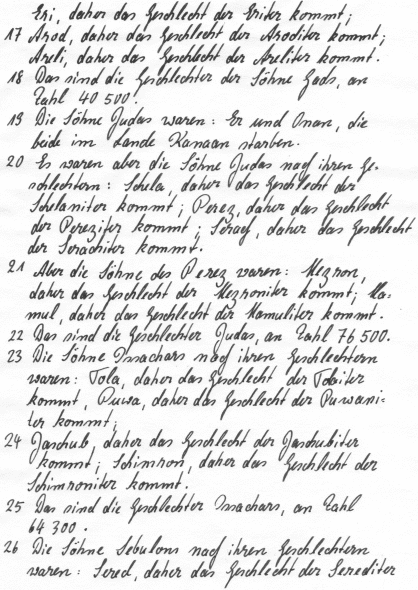 Eri, daher das Geschlecht der Eriter kommt;
17 Arod, daher das Geschlecht der Aroditer kommt;
Areli, daher das Geschlecht der Areliter kommt.
18 Das sind die Geschlechter der Söhne Gads, an
Zahl 40 500.
19 Die Söhne Judas waren: Er und Onan, die
beide im Lande Kanaan starben.
20 Es waren aber die Söhne Judas nach ihren Ge-
schlechtern: Schela, daher das Geschlecht der
Schelaniter kommt; Perez, daher das Geschlecht
der Pereziter kommt; Serach, daher das Geschlecht
der Serachiter kommt.
21 Aber die Söhne des Perez waren: Hezron,
daher das Geschlecht der Hezroniter kommt; Ha-
mul, daher das Geschlecht der Hamuliter kommt.
22 Das sind die Geschlechter Judas, an Zahl 76 500.
23 Die Söhne Issachars nach ihren Geschlechtern
waren: Tola, daher das Geschlecht der Tolaiter
kommt, Puwa, daher das Geschlecht der Puwani-
ter kommt;
24 Jaschub, daher das Geschlecht der Jaschubiter
kommt; Schimron, daher das Geschlecht der
Schimroniter kommt.
25 Das sind die Geschlechter Issachars, an Zahl
64 300.
26 Die Söhne Sebulons nach ihren Geschlechtern
waren: Sered, daher das Geschlecht der Serediter